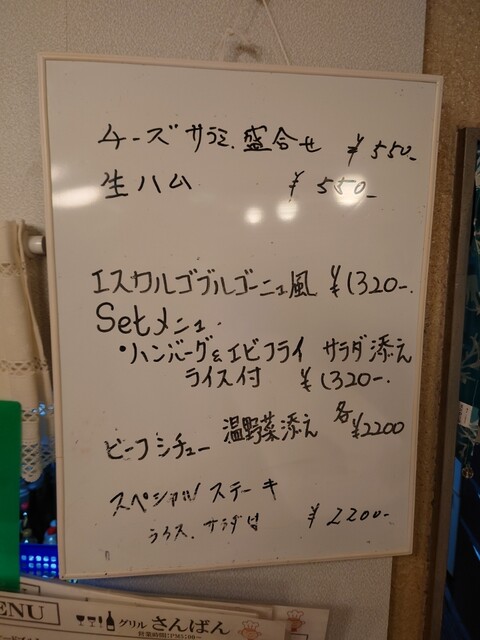 チーズ サラミ 盛合せ ¥550-
生ハム ¥550-
エスカルゴブルゴーニュ風 ¥1320-
Setメニュー
・ハンバーグ&エビフライ サラダ添え
ライス付 ¥1320-
ビーフシチュー 温野菜添え 各¥2200
スペシャル ステーキ
ライス、サラダ付 ¥2200-
ENU
グリル さんばん
営業時間/PM5:00〜